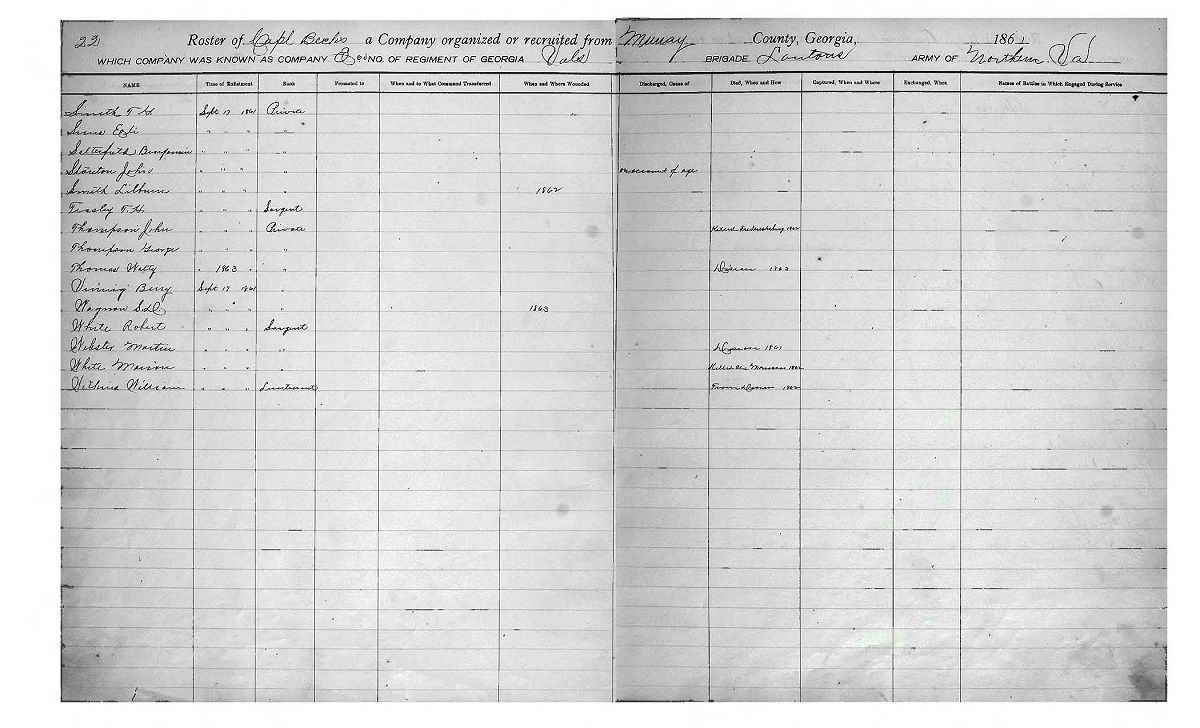 22 Roster of Capt Becks a Company organized or recruited from Murray County, Georgia, 1861
WHICH COMPANY WAS KNOWN AS COMPANY NO. OF REGIMENT OF GEORGIA Vols BRIGADE Lawtons ARMY OF Northern Va
NAME Time of Enlistment Rank Promoted to When and to What Command Transferred When and Where Wounded Discharged, Cause of Died, When and How Captured, When and Where Exchanged, When Names of Battles in Which Engaged During Service
Smith T. H. Sept 17 1861 Private
" " " "
Satterfield Benjamin " " " "
Stanton John " " " " on account of age
Smith Lilburn " " " " 1862
Teasley T. H. " " " Sargent
Thompson John " " " Private Killed Fredericksburg 1862
Thompson George " " " "
Thomas Watty " 1863 " " Disease 1863
Vining Berry Sept 17 1861 "
Wagnon " " " " 1863
White Robert " " " Sargent
Webster Martin " " " " Disease 1861
White Marion " " " " Killed Manassas 1862
William " " " Lieutenant From Disease 1862